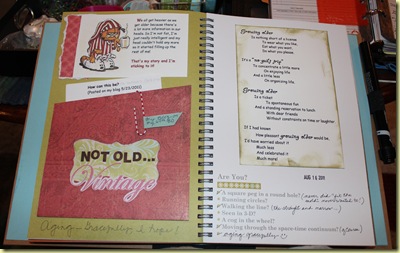 We all get heavier as we
get older because there's
a lot more information in our
heads. So I'm not fat, I'm
just really intelligent and my
head couldn't hold any more
so it started filling up the
rest of me!
That's my story and I'm
sticking to it!
How can this be?
(Posted on my blog 5/23/2011)
NOT OLD...
Vintage
Aging - Gracefully I hope!
Growing older
Is nothing short of a license
To wear what you like,
Eat what you want,
Do what you please
It's a "no-guilt pass"
To concentrate a little more
On enjoying life
And a little less
On organizing life
Growing older
Is a ticket
To spontaneous fun
And a standing reservation to lunch
With dear friends
Without constraints as time or laughter
If I had known
How pleasant growing older would be,
I'd have worried about it
Much less
And celebrated it
Much more!
AUG 16 2011
Are You?
A square peg in a round hole?
Running circles?
Walking the line? (the straight and narrow..)
Seen in 3-D?
A cog in the wheel?
Moving through the space-time continuum?
aging gracefully